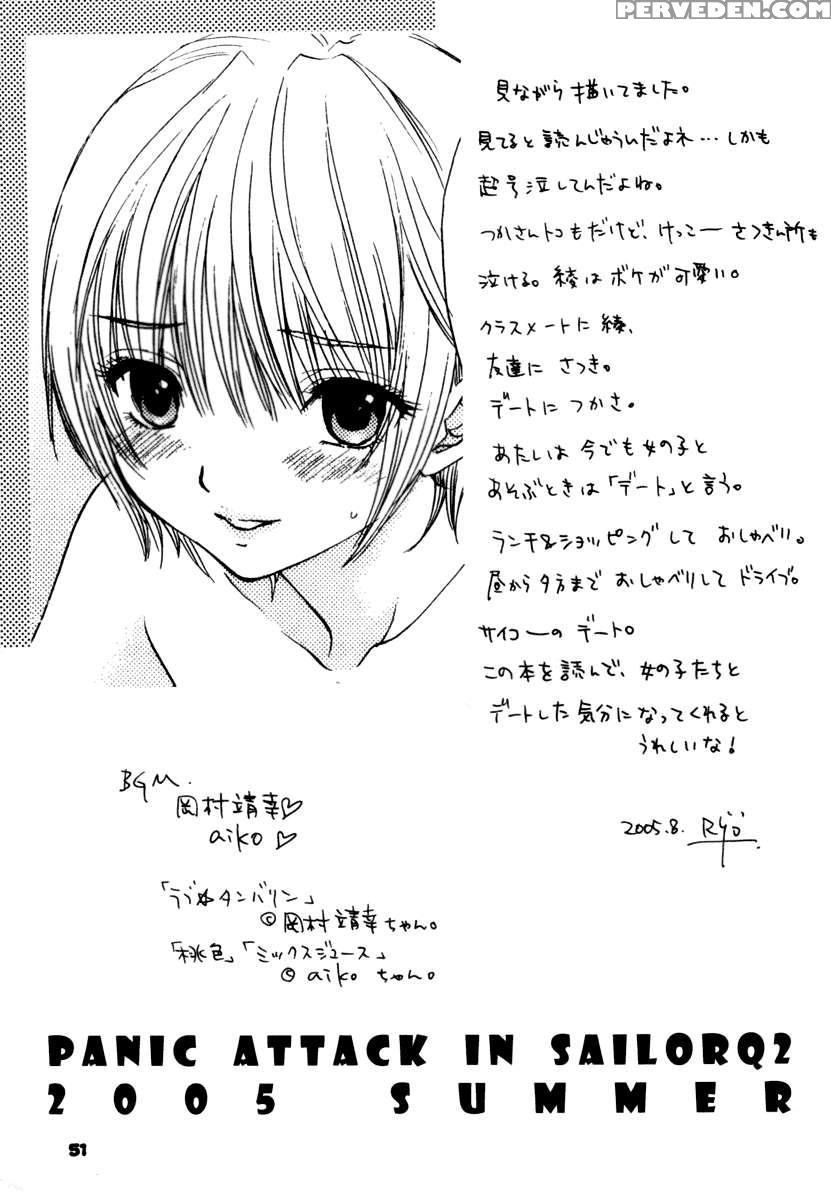 PERVEDEN.COM
見ながら描いてました。
見てると読んじゃうんだよネ…しかも
超号泣してんだよね。
つかさんトコもだけど、けっこー さつきん所も
泣ける。綾はボケが可愛い。
クラスメートに綾、
友達に さつき。
デートに つかさ。
あたいは 今でも女の子と
あそぶときは「デート」と言う。
ランチ&ショッピングして おしゃべり。
昼から夕方まで おしゃべりして ドライブ。
サイコーの デート。
この本を読んで、女の子たちと
デートした気分になってくれると
うれしいな!
2005.8. Ryö
BGM.
岡村靖幸♡
aiko♡
「ラブ タンバリン」
© 岡村靖幸ちゃん。
「桃色」「ミックスジュース」
© aiko ちゃん。
PANIC ATTACK IN SAILORQ2
2005 SUMMER
51